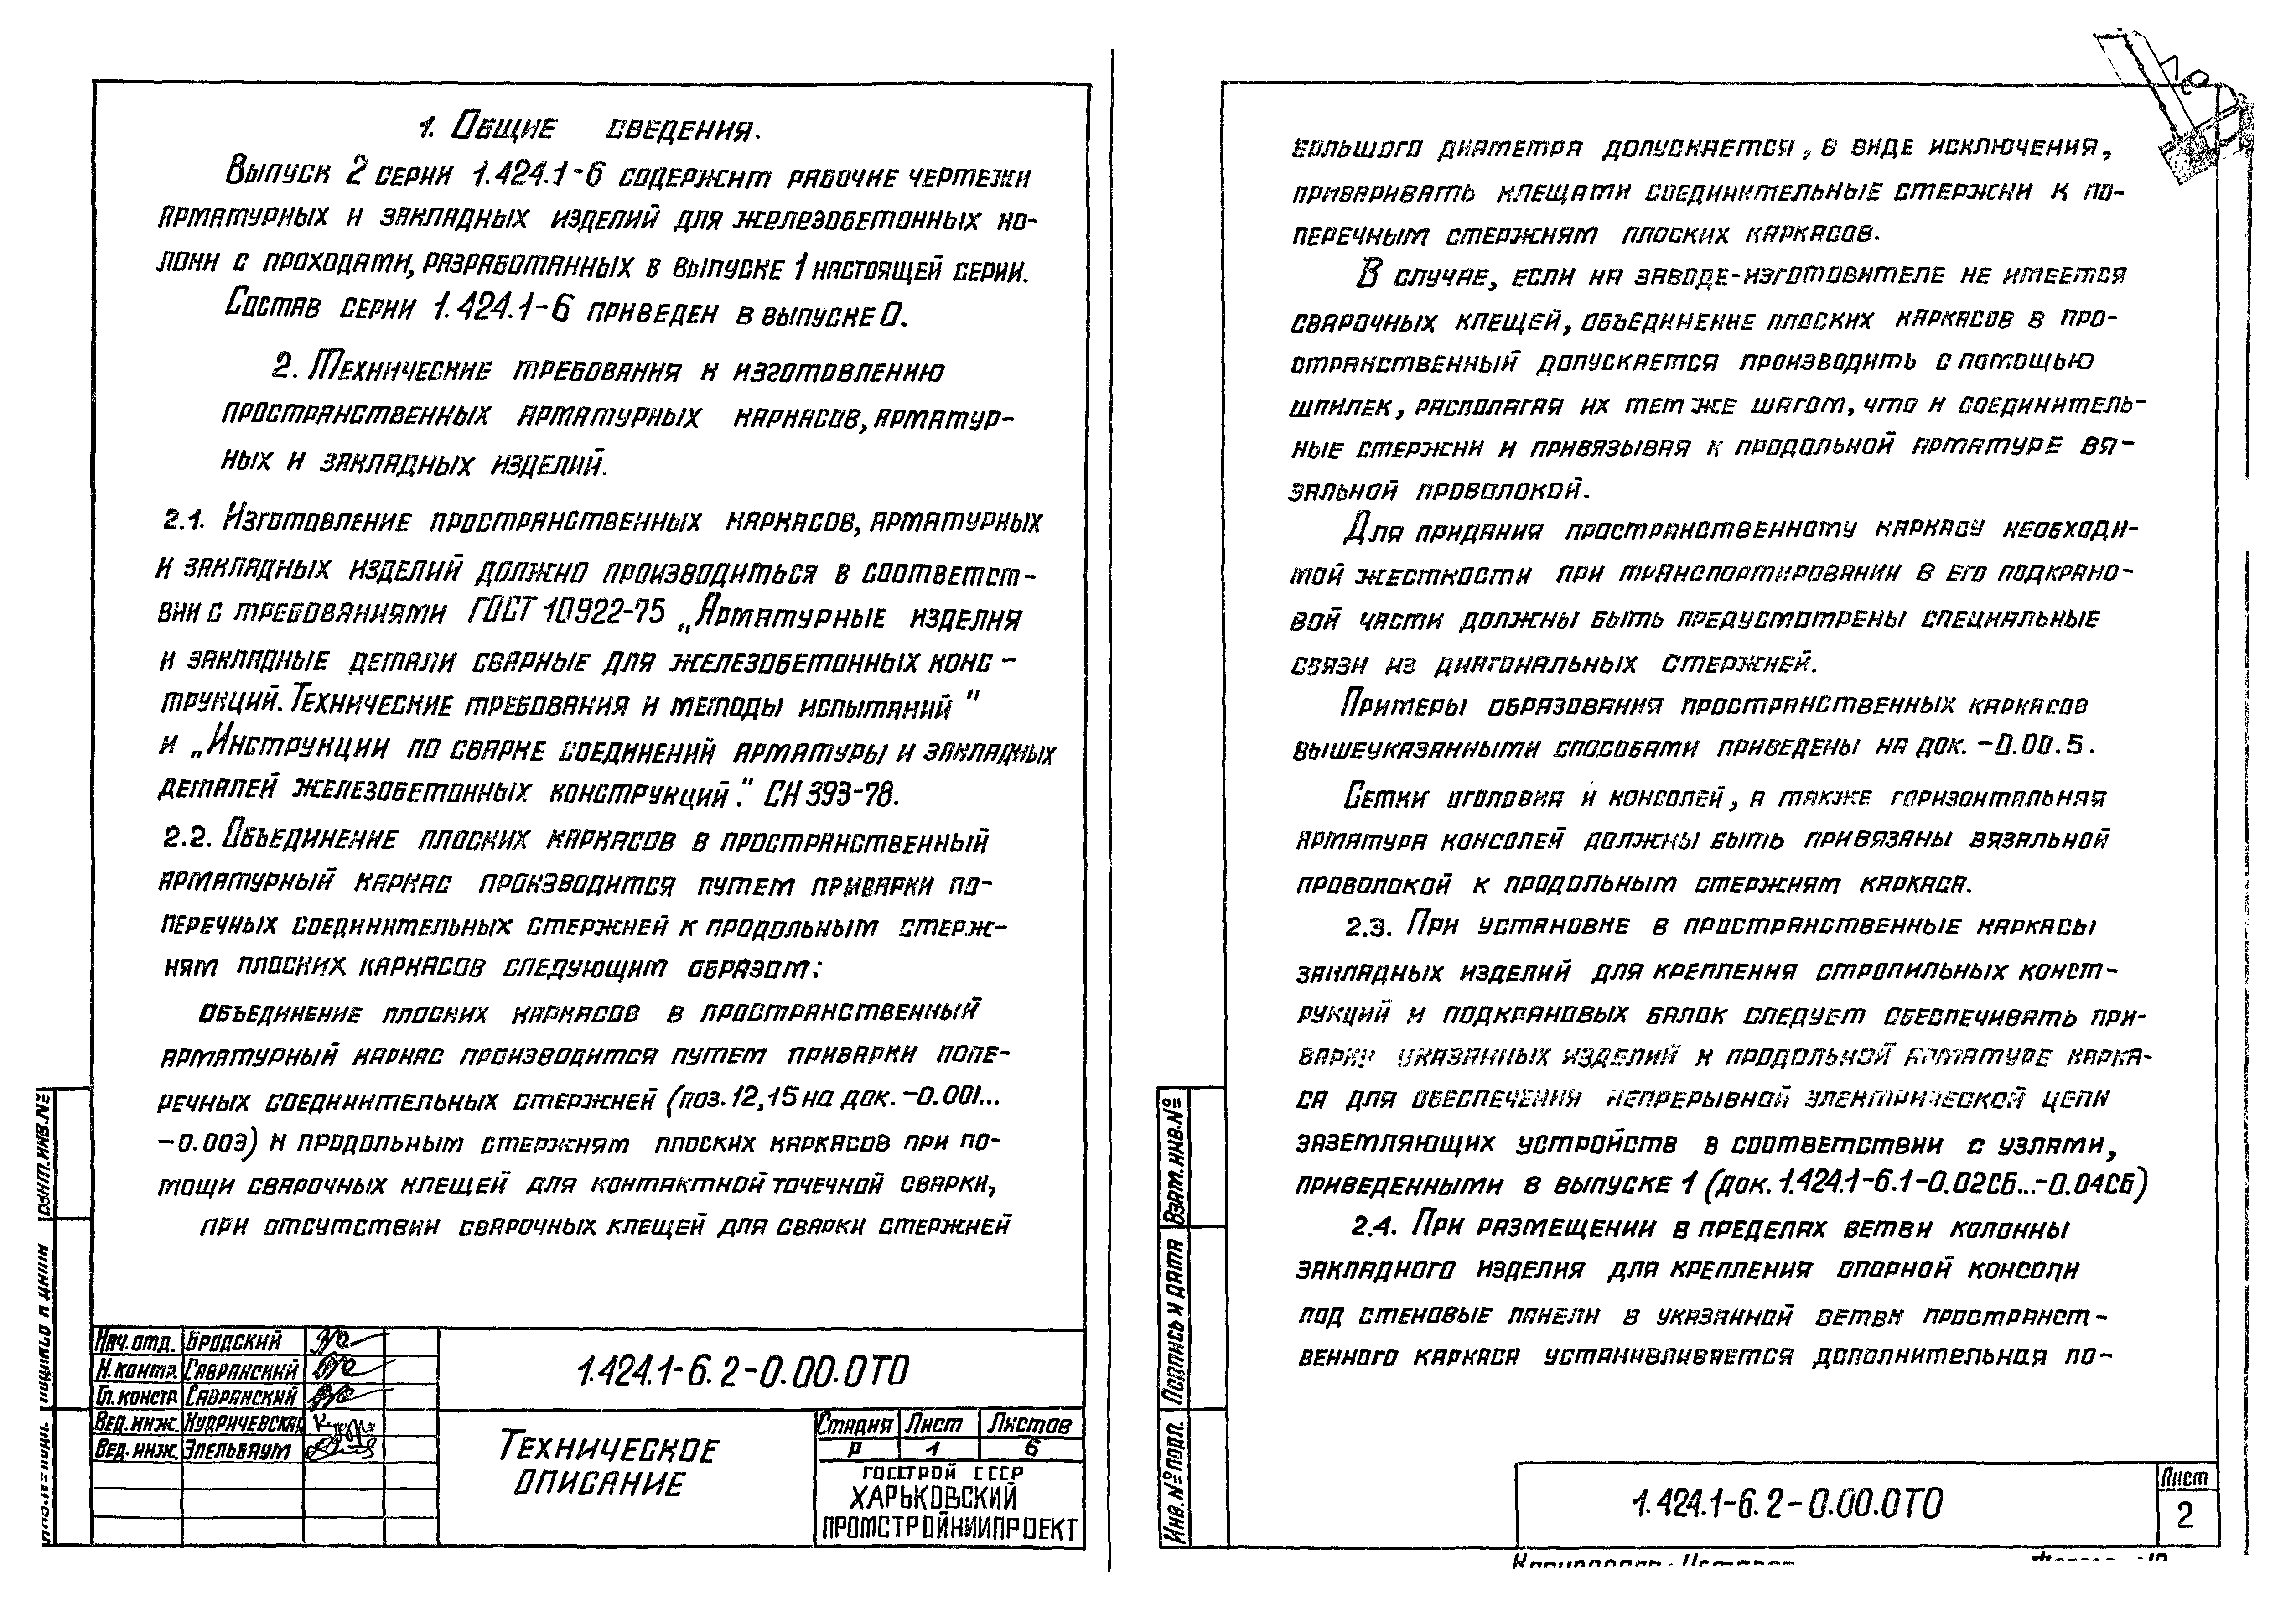 1. Общие сведения.
Выпуск 2 серии 1.424.1-6 содержит рабочие чертежи
арматурных и закладных изделий для железобетонных ко-
лонн с проходами, разработанных в выпуске 1 настоящей серии.
Состав серии 1.424.1-6 приведен в выпуске 0.
2. Технические требования к изготовлению
пространственных арматурных каркасов, арматур-
ных и закладных изделий.
2.1. Изготовление пространственных каркасов, арматурных
и закладных изделий должно производиться в соответст-
вии с требованиями ГОСТ 10922-75 „Арматурные изделия
и закладные детали сварные для железобетонных конс-
трукций. Технические требования и методы испытаний"
и „Инструкции по сварке соединений арматуры и закладных
деталей железобетонных конструкций." СН 393-78.
2.2. Объединение плоских каркасов в пространственный
арматурный каркас производится путем приварки по-
перечных соединительных стержней к продольным стерж-
ням плоских каркасов следующим образом:
объединение плоских каркасов в пространственный
арматурный каркас производится путем приварки попе-
речных соединительных стержней (поз. 12, 15 на док. -0.001...
-0.003) к продольным стержням плоских каркасов при по-
мощи сварочных клещей для контактной точечной сварки,
при отсутствии сварочных клещей для сварки стержней
Нач. отд. Бродский
Н. контр. Гавранский
Гл. констр. Гавранский
Вед. инж. Кудричевская
Вед. инж. Эпельбаум
1.424.1-6.2-0.00.0ТО
Техническое
описание
Стадия Лист Листов
Р 1 6
Госстрой СССР
Харьковский
Промстройниипроект
большого диаметра допускается, в виде исключения,
приваривать клещами соединительные стержни к по-
перечным стержням плоских каркасов.
В случае, если на заводе-изготовителе не имеется
сварочных клещей, объединение плоских каркасов в про-
странственный допускается производить с помощью
шпилек, располагая их тем же шагом, что и соединитель-
ные стержни и привязывая к продольной арматуре вя-
зальной проволокой.
Для придания пространственному каркасу необходи-
мой жесткости при транспортировании в его подкрано-
вой части должны быть предусмотрены специальные
связи из диагональных стержней.
Примеры образования пространственных каркасов
вышеуказанными способами приведены на док. -0.00.5.
Сетки оголовка и консолей, а также горизонтальная
арматура консолей должны быть привязаны вязальной
проволокой к продольным стержням каркаса.
2.3. При установке в пространственные каркасы
закладных изделий для крепления стропильных конст-
рукций и подкрановых балок следует обеспечивать при-
варку указанных изделий к продольной арматуре карка-
са для обеспечения непрерывной электрической цепи
заземляющих устройств в соответствии с узлами,
приведенными в выпуске 1 (док. 1.424.1-6.1-0.02СБ...-0.04СБ)
2.4. При размещении в пределах ветви колонны
закладного изделия для крепления опорной консоли
под стеновые панели в указанной ветви пространст-
венного каркаса устанавливается дополнительная по-
Инв. № подл. Подпись и дата Взам. инв. №
1.424.1-6.2-0.00.0ТО
Лист
2